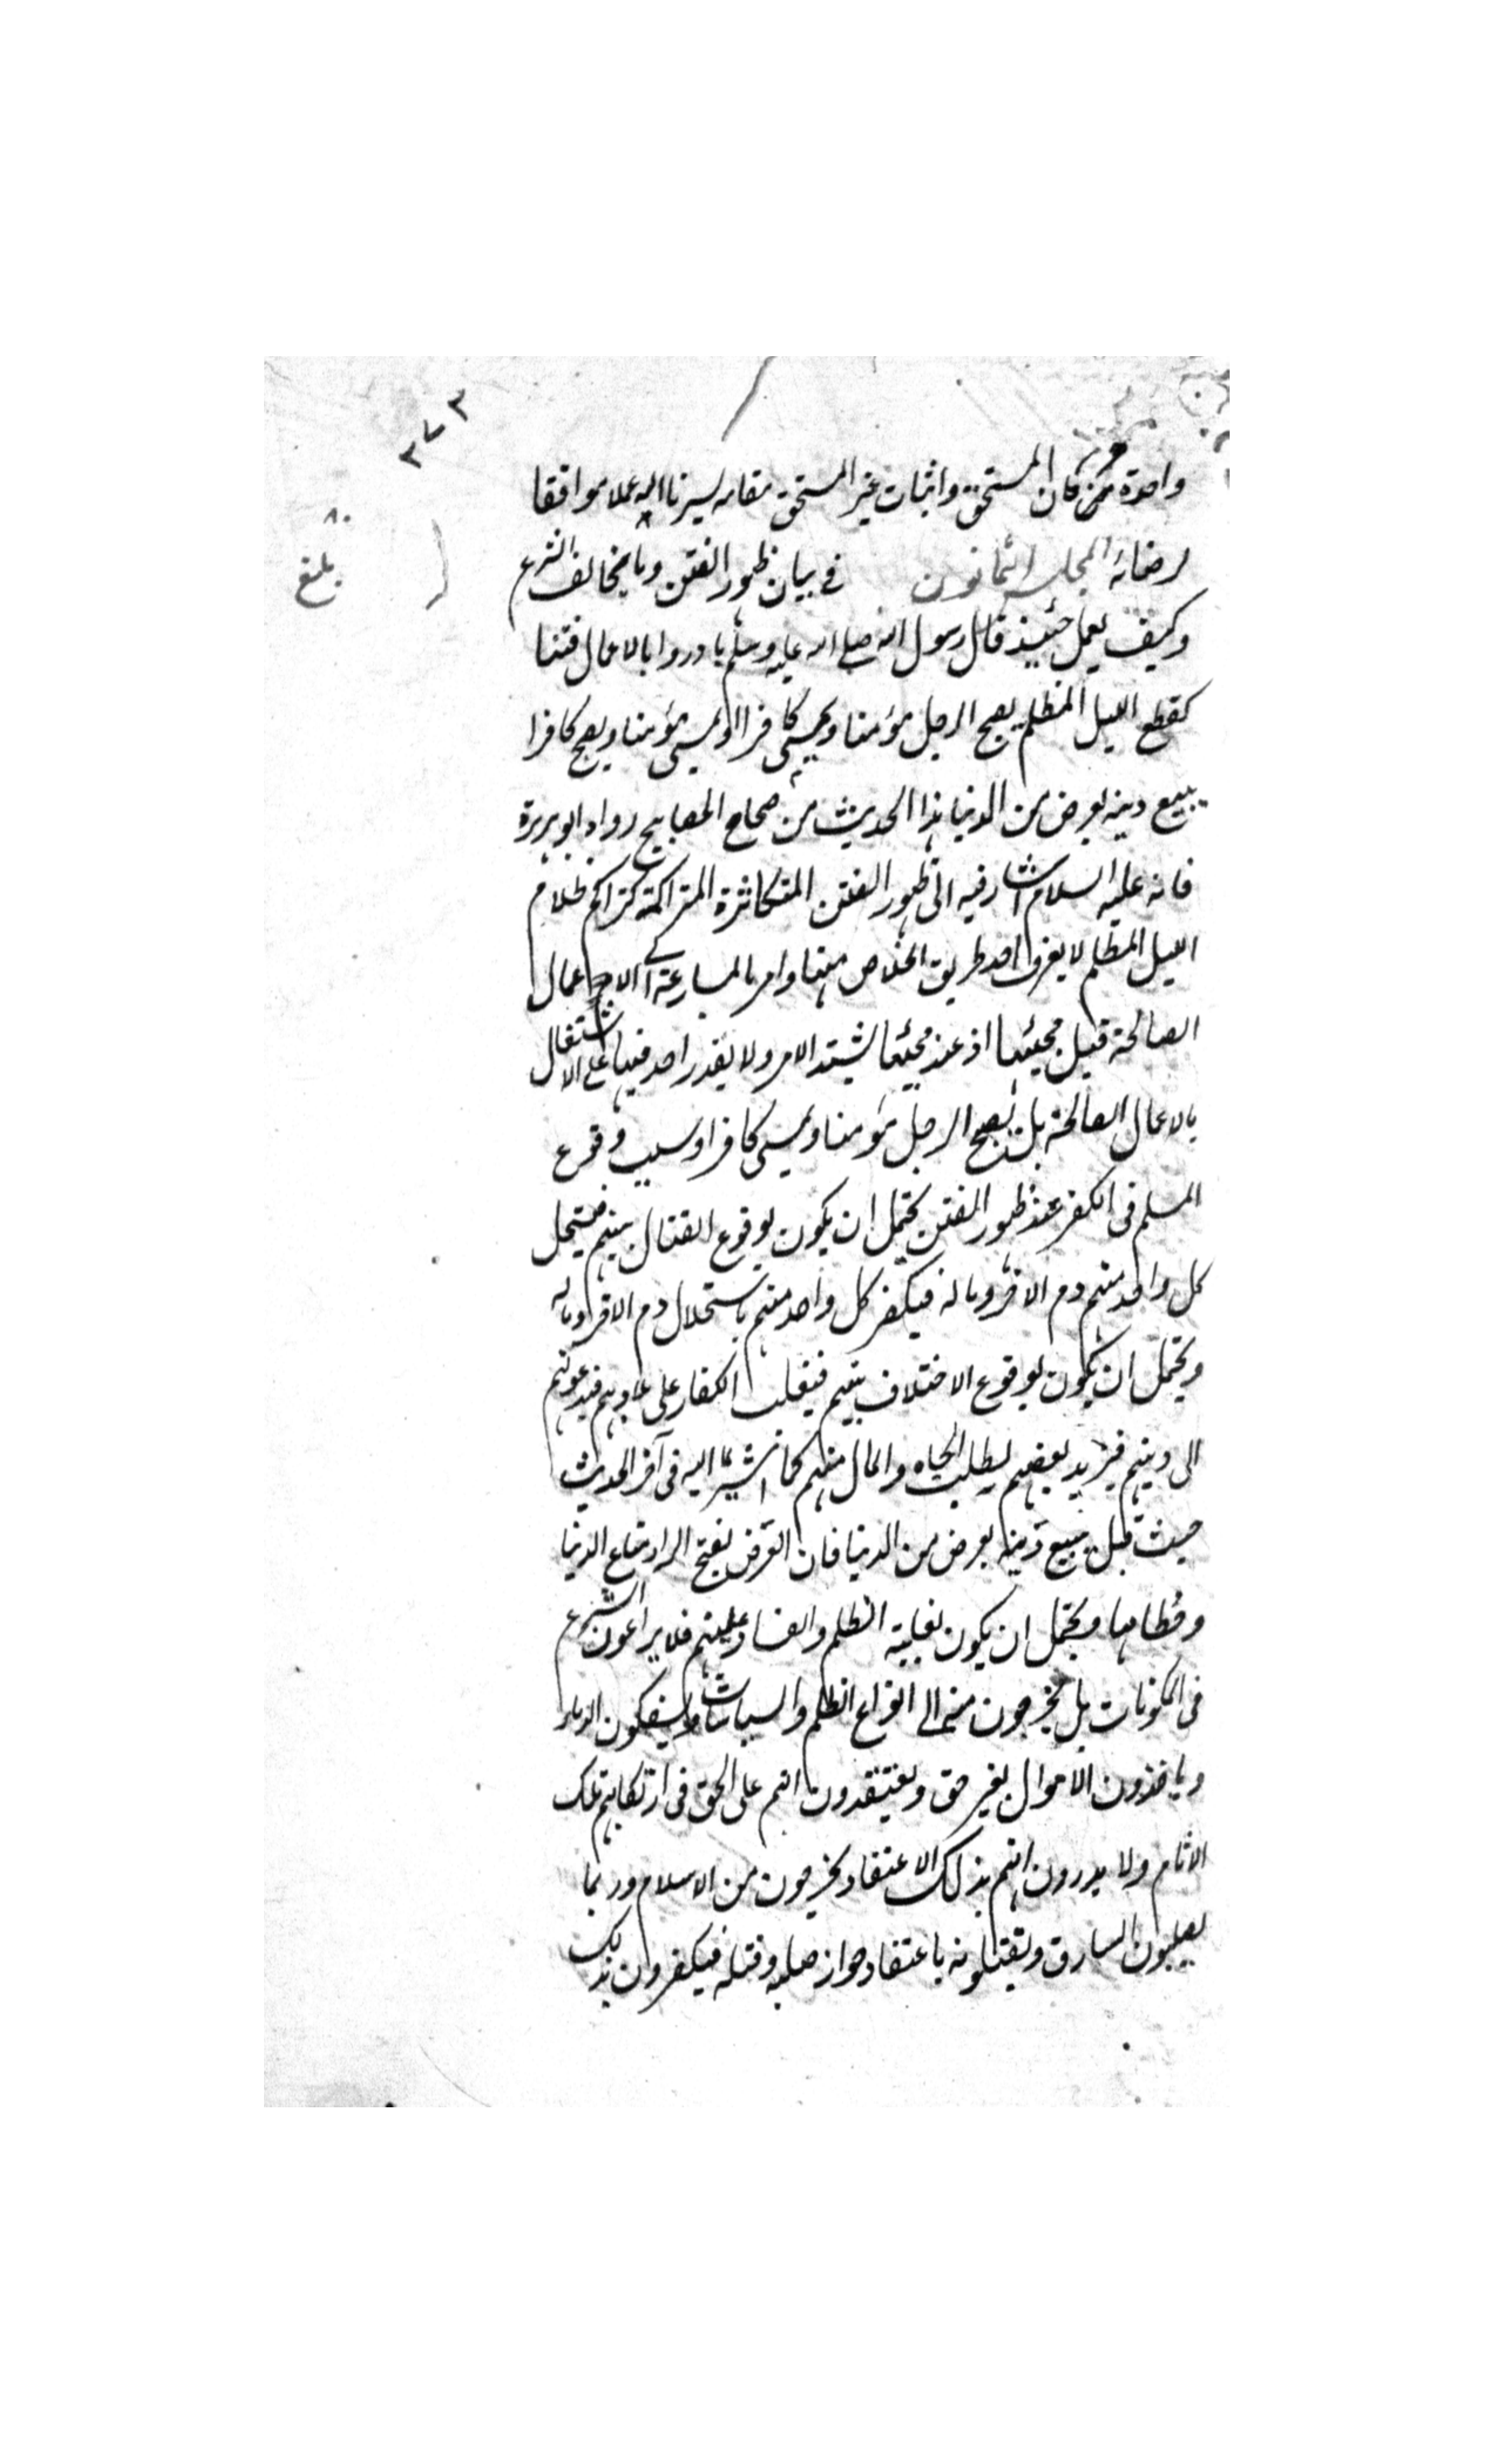 ٣٧٣
واحدة من كان المستحق واثبات غير المستحق مقامه يسرنا الله عملا موافقا
لرضائه المجلس الثمانون في بيان ظهور الفتن وما يخالف الشرع
٨٠
بلغ
وكيف يعمل حينئذ قال رسول الله صلى الله عليه وسلم بادروا بالاعمال فتنا
كقطع الليل المظلم يصبح الرجل مؤمنا ويمسى كافرا او يمسى مؤمنا ويصبح كافرا
يبيع دينه بعرض من الدنيا هذا الحديث من صحاح المصابيح رواه ابو هريرة
فانه عليه السلام اشار فيه الى ظهور الفتن المتكاثرة المتراكمة كتراكم ظلام
الليل المظلم لا يعرف احد طريق الخلاص منها وامر بالمسارعة الى الاعمال
الصالحة قبل مجيئها اذ عند مجيئها يشتد الامر ولا يقدر احد فيها على الاشتغال
بالاعمال الصالحة بل يصبح الرجل مؤمنا ويمسى كافرا وسبب وقوع
المسلم فى الكفر عند ظهور الفتن يحتمل ان يكون بوقوع القتال بينهم فيستحل
كل واحد منهم دم الاخر وماله فيكفر كل واحد منهم باستحلال دم الاخر وماله
ويحتمل ان يكون بوقوع الاختلاف بينهم فيغلب الكفار على بلادهم فيدعونهم
الى دينهم فيرتد بعضهم لطلب الجاه والمال منهم كما اشير اليه فى آخر الحديث
حيث قيل يبيع دينه بعرض من الدنيا فان العرض بفتح الراء متاع الدنيا
وحطامها ويحتمل ان يكون لغلبة الظلم والفساد عليهم فلا يراعون الشرع
فى الحكومات بل يخرجون منه الى انواع الظلم والسياسات ويسفكون الدماء
وياخذون الاموال بغير حق ويعتقدون انهم على الحق فى ارتكابهم تلك
الاثام ولا يدرون انهم بذلك الاعتقاد يخرجون من الاسلام وربما
يصلبون السارق ويقتلونه باعتقاد جواز صلبه وقتله فيكفرون بذلك